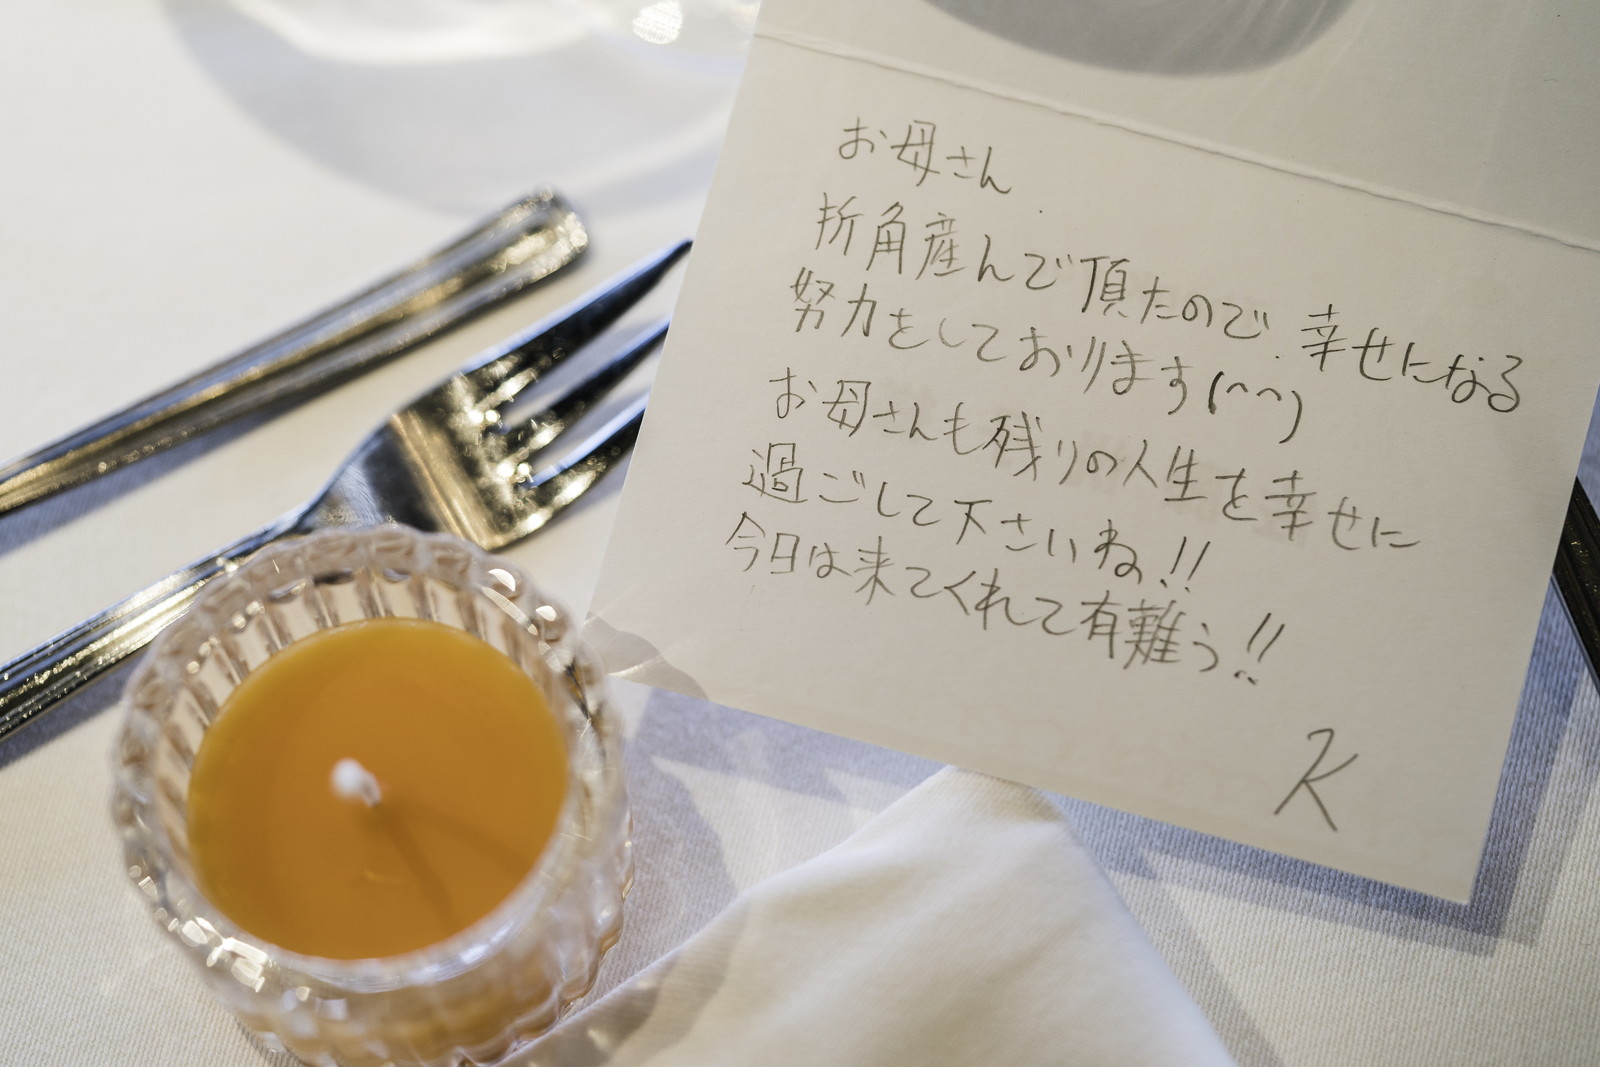 お母さん
折角産んで頂たので、幸せになる
努力をしております(^^)
お母さんも残りの人生を幸せに
過ごして下さいね!!
今日は来てくれて有難う!!
K